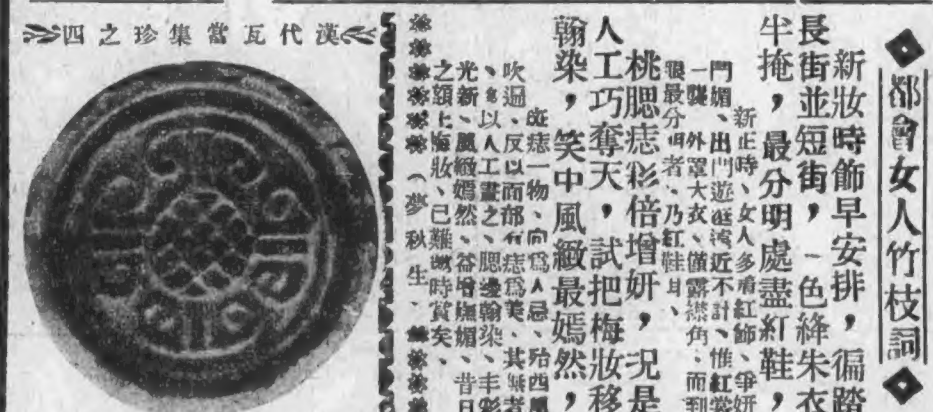 都會女人竹枝詞
新妝時飾早安排，徧踏
長街並短街，一色絳朱衣
半掩，最分明處盡紅鞋，
新正時、女人多着紅飾、爭妍
鬥媚、出門遊逛遠近不計、惟紅裳
一襲、外罩大衣、僅露襟角、而到
眼最分明者、乃紅鞋耳、
桃腮痣彩倍增妍，況是
人工巧奪天，試把梅妝移
翰染，笑中風緻最嫣然，
斑痣一物、向爲人忌、殆西風
吹過、反以面部有痣爲美、其無者
、以人工畫之、腮邊翰染、丰彩
光新、風緻嫣然、益增嫵媚、昔日
之額上梅妝、已難時賞矣、
（夢秋生
漢代瓦當集珍之四